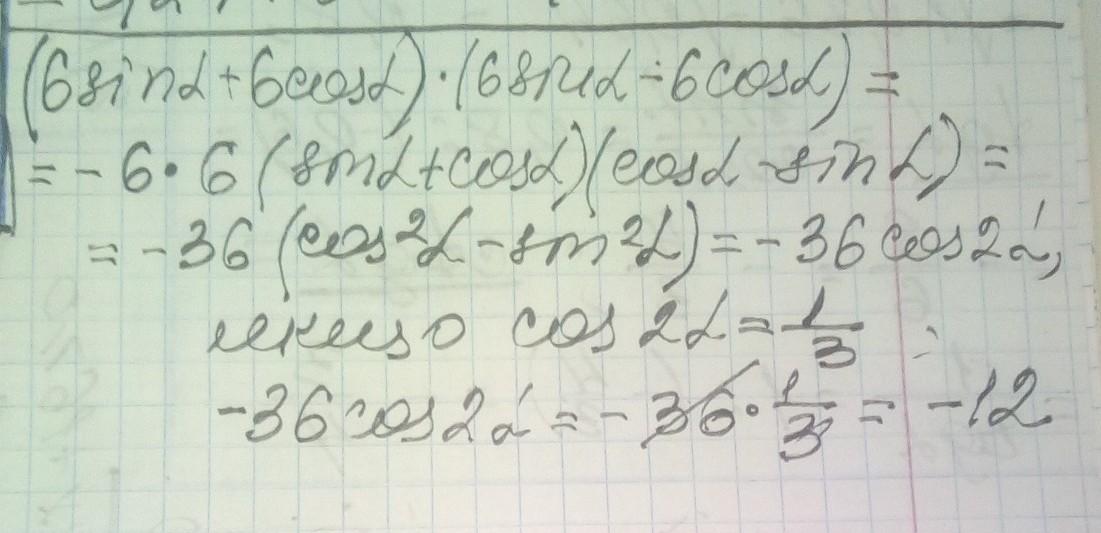 (6sinα+6cosα)·(6sinα-6cosα)=
=-6·6(sinα+cosα)(cosα-sinα)=
=-36(cos²α-sin²α)=-36cos2α,
якщо cos2α=1/3 :
-36cos2α=-36·1/3=-12